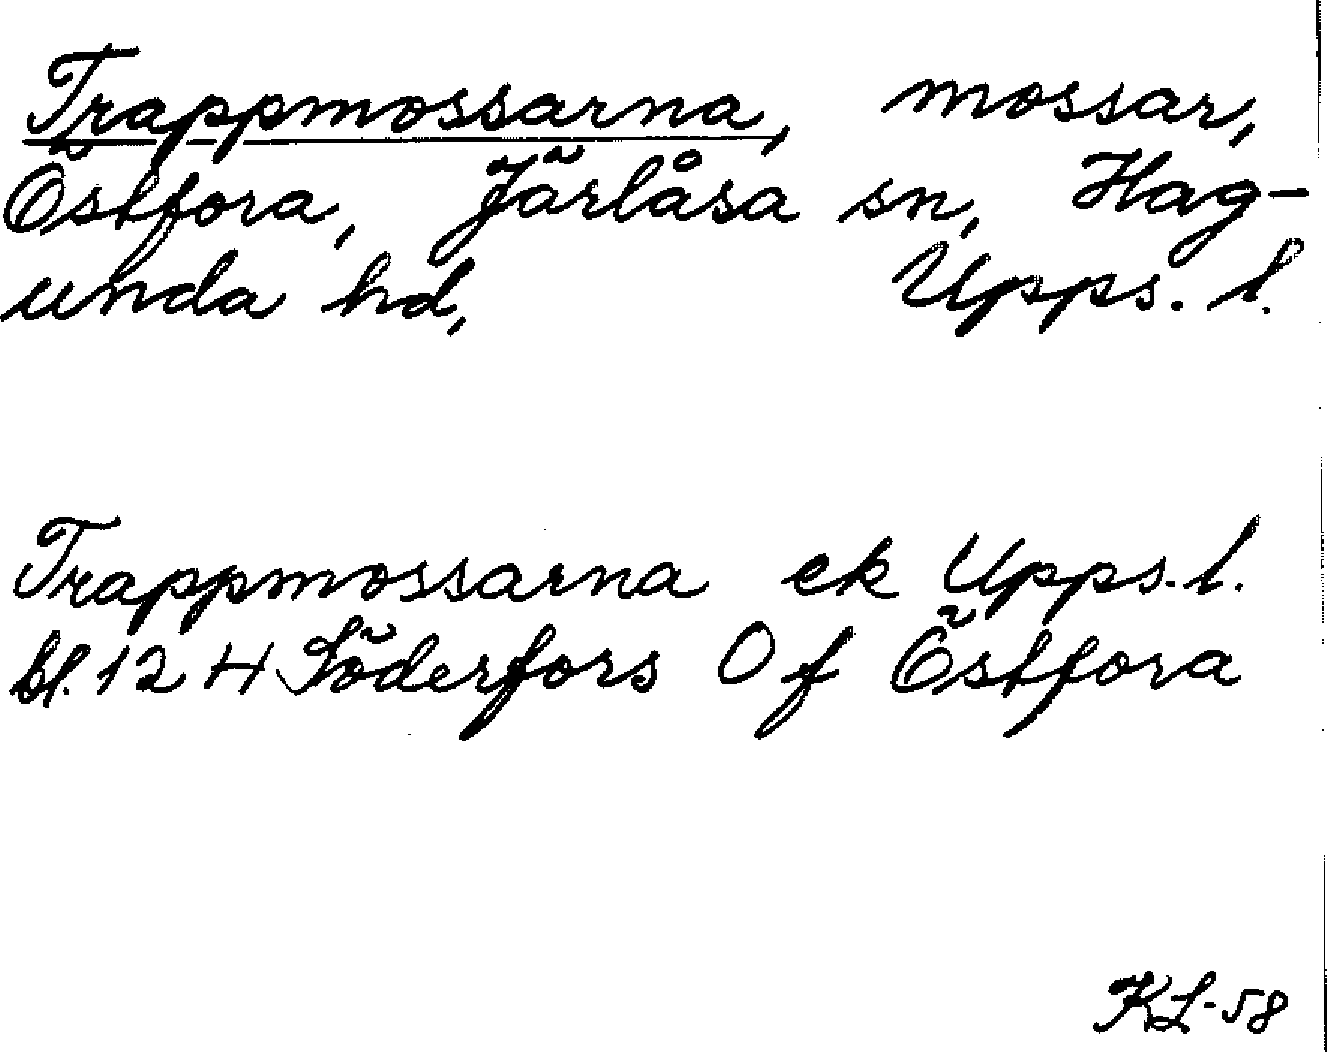 Trappmossarna, mossar,
Östfora, Järlåsa sn, Hag-
unda hd, Upps. l.
Trappmossarna ek Upps. l.
bl. 12 H Söderfors O f Östfora
KL-58